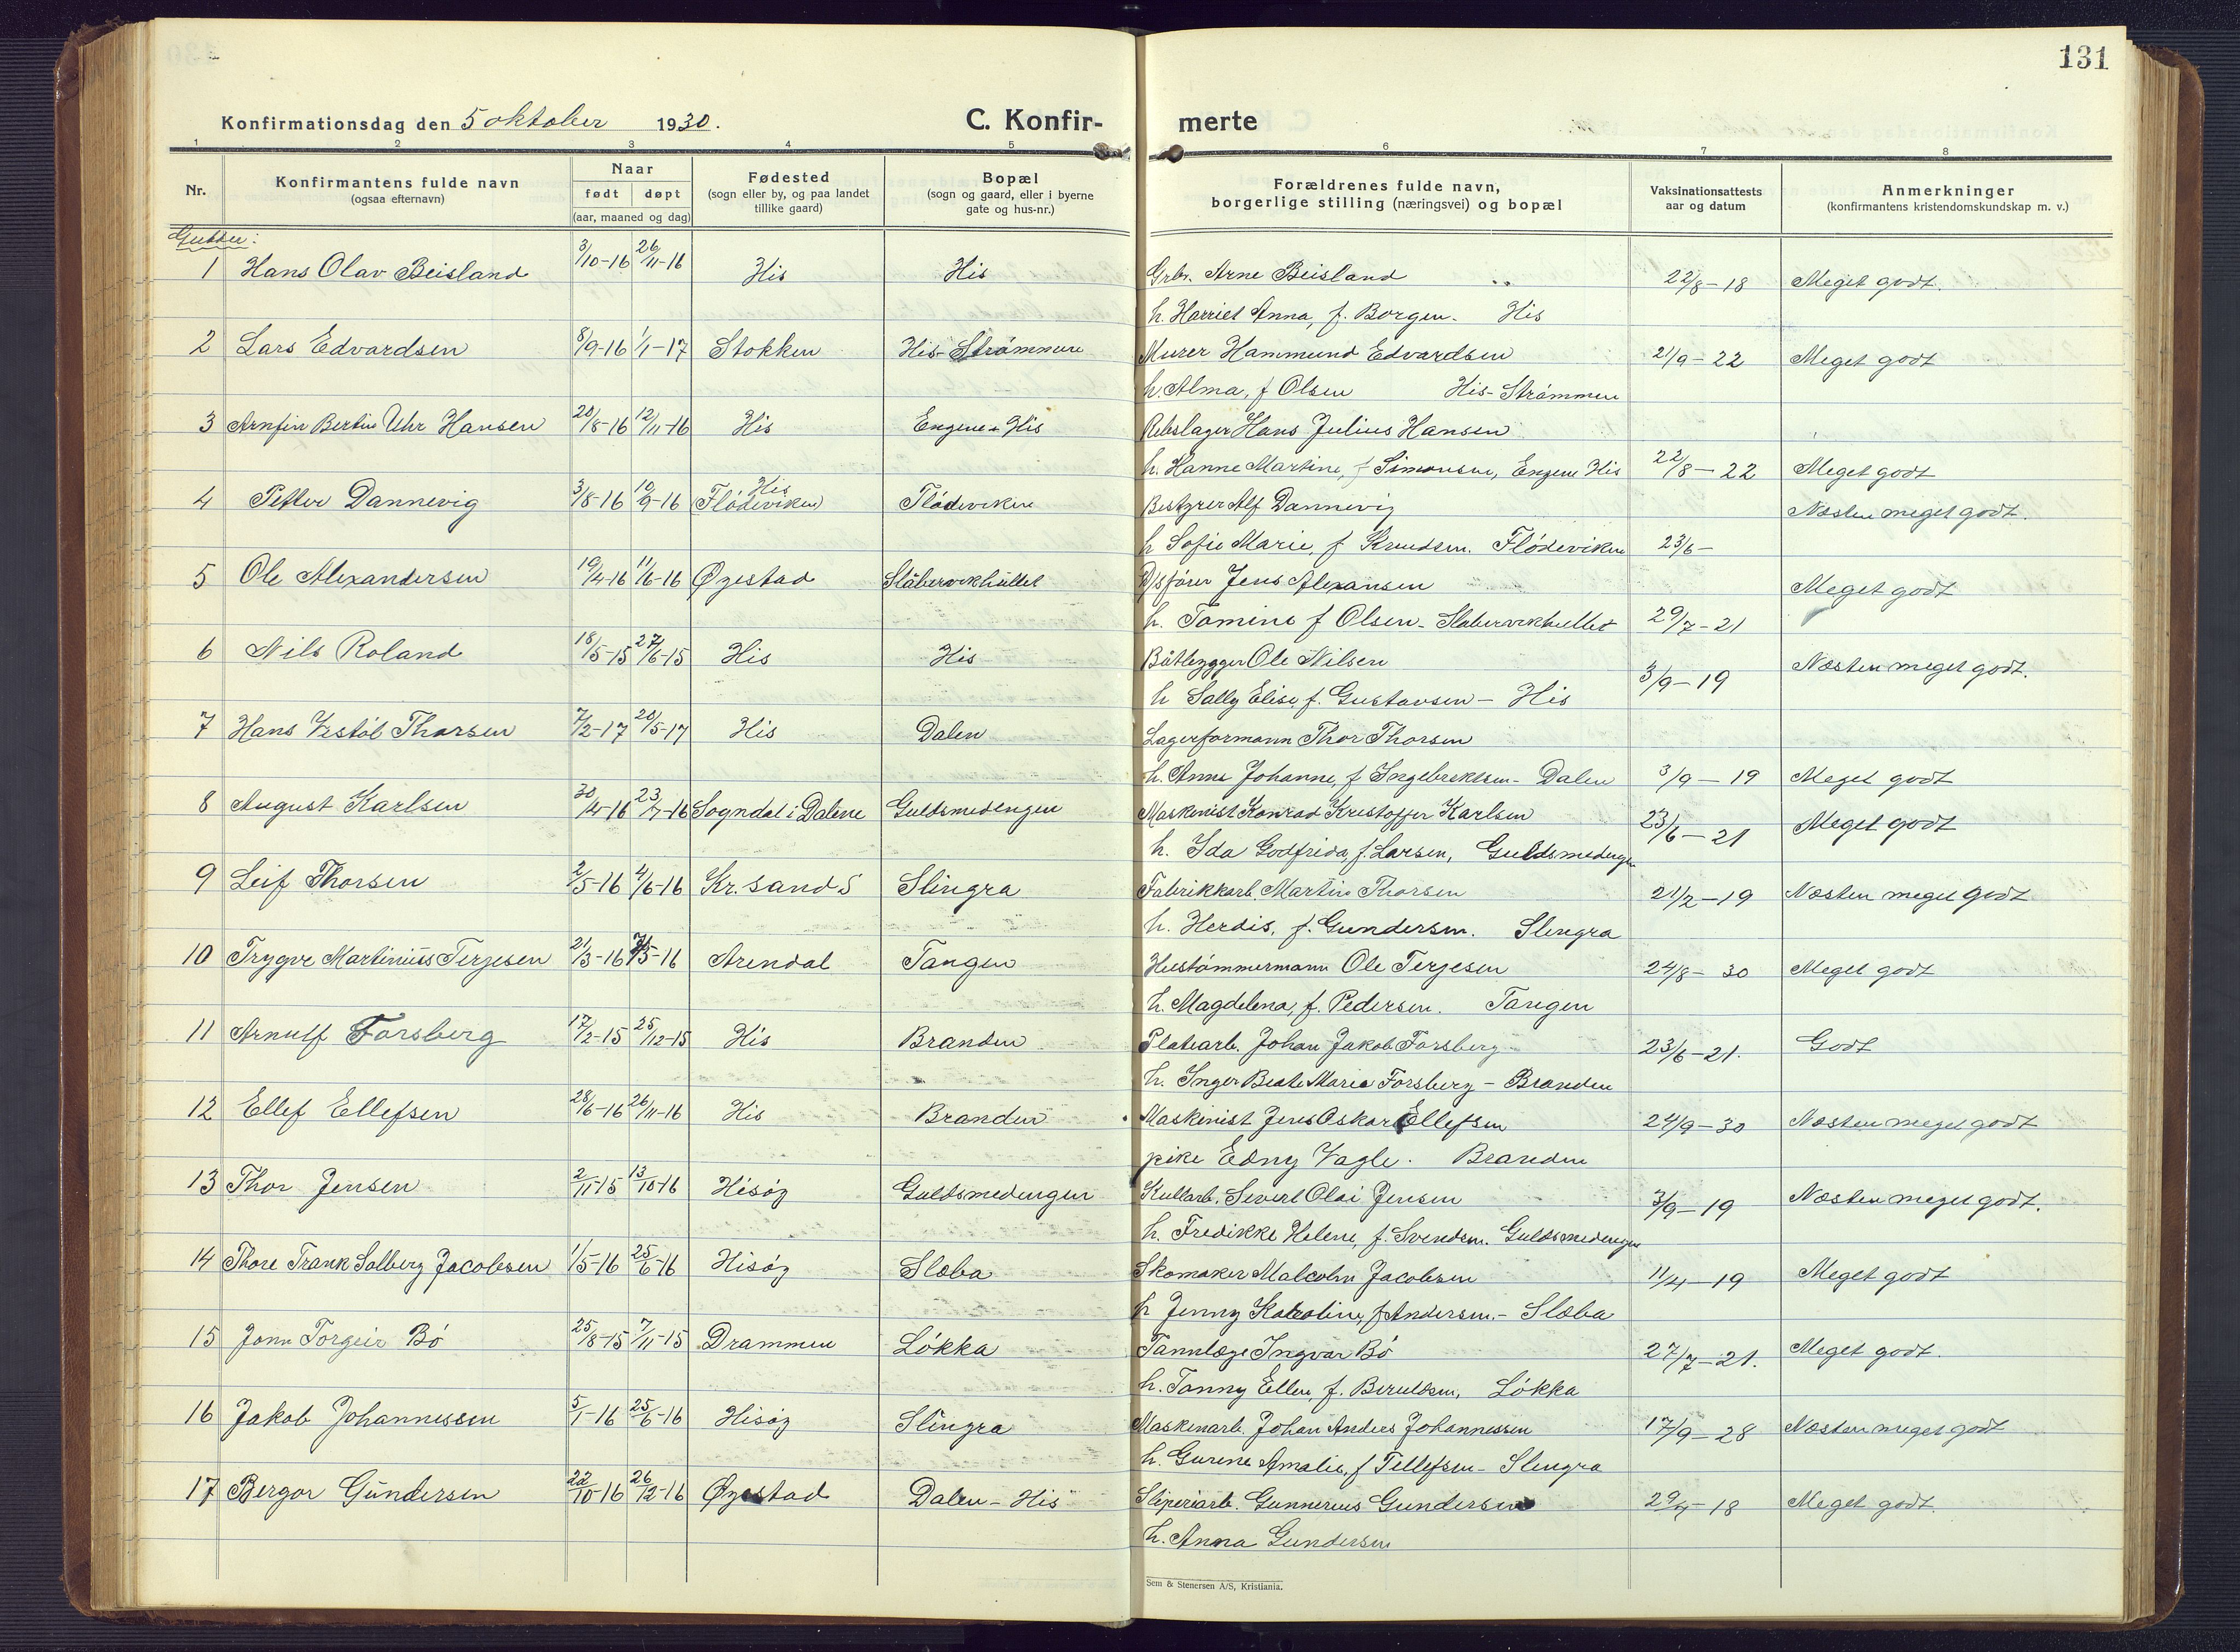 131
Konfirmationsdag den 5 oktober 1930.
C. Konfir-merte
1 2 3 4 5 6 7 8
Nr.
Konfirmantens fulde navn
(ogsaa efternavn)
Naar
født døpt
(aar, maaned og dag)
Fødested
(sogn eller by, og paa landet
tillike gaard)
Bopæl
(sogn og gaard, eller i byerne
gate og hus-nr.)
Forældrenes fulde navn,
borgerlige stilling (næringsvei) og bopæl
Vaksinationsattests
aar og datum
Anmerkninger
(konfirmantens kristendomskundskap m. v.)
Gutter:
1 Hans Olav Beisland 3/10-16 26/11-16 His His Grbr. Arne Beisland 22/8-18 Meget godt.
h. Harriet Anna, f. Borgen- His
2 Lars Edvardsen 8/9-16 1/1-17 Stokken His-Strømmen Murer Hammund Edvardsen 21/9-22 Meget godt
h. Alma, f Olsen His-Strømmen
3 Arnfin Bertin Uhr Hansen 20/8-16 12/11-16 His Engene-His Rebslager Hans Julius Hansen
h. Hanne Martine, f Simonsen, Engene His 22/8-22 Meget godt
4 Petter Dannevig 3/8-16 10/9-16 His (Flødeviken) Flødeviken Bestyrer Alf Dannevig Næsten meget godt.
h Sofie Marie, f Knudsen. Flødeviken 23/6-
5 Ole Alexandersen 19/4-16 11/6-16 Øyestad Ståbervikhullet Jens Alexansen Meget godt
h. Tomine f Olsen- Stabervikhullet 29/7-21
6 Nils Roland 18/5-15 27/6-15 His His Båtbygger Ole Nilsen Næsten meget godt.
h Sally Elise, f. Gustavsen- His 3/9-19
7 Hans Vestøl Thorsen 7/2-17 20/5-17 His Dalen Lagerformann Thor Thorsen
h. Anne Johanne, f Ingebrektsen- Dalen 3/9-19 Meget godt
8 August Karlsen 30/4-16 23/7-16 Sogndal i Dalene Guldsmedengen Maskinist Konrad Kristoffer Karlsen 23/6-21 Meget godt
h. Ida Godfrida, f. Larsen, Guldsmedengen
9 Leif Thorsen 2/5-16 4/6-16 Kr.sand S Slingra Fabrikkarb. Martin Thorsen 21/2-19 Næsten meget godt
h. Herdis, f. Gundersen. Slingra
10 Trygve Martinius Terjesen 21/3-16 /5-16 Arendal Tangen Hustømmermann Ole Terjesen 24/8-30 Meget godt
h. Magdelena, f. Pedersen. Tangen
11 Arnulf Forsberg 17/2-15 25/12-15 His Branden Platearb. Johan Jakob Forsberg 23/6-21. Godt
h. Inger Beate Marie Forsberg - Branden
12 Ellef Ellefsen 28/6-16 26/11-16 His Branden Maskinist Jens Oskar Ellefsen 24/9-30 Næsten meget godt
pike Edny Vagle. Branden
13 Thor Jensen 2/11-15 13/10-16 Hisøy Guldsmedengen Kullarb. Severt Olai Jensen 3/9-19 Næsten meget godt.
h. Fredikke Helene, f. Svendsen. Guldsmedengen
14 Thore Frank Solberg Jacobsen 1/5-16 25/6-16 Hisøy Sløba Skomaker Malcolm Jacobsen 11/4-19 Meget godt
h Jenny Karoline, f Andersen.- Sløba
15 Jonn Torgeir Bø 25/8-15 7/11-15 Drammen Løkka Tannlæge Ingvar Bø 27/7-21. Meget godt.
h. Fanny Ellen, f. Beruldsen, Løkka
16 Jakob Johannessen 5/1-16 25/6-16 Hisøy Slingra Maskinarb. Johan Anders Johannessen 17/9-28 Næsten meget godt
h. Gurine Amalie, f Tellefsen- Slingra
17 Bergor Gundersen 22/10-16 26/12-16 Øyestad Dalen - His Sliperiarb. Gunnerius Gundersen 29/7-18 Meget godt.
h. Anna Gundersen
Sem & Stenersen A/S, Kristiania.